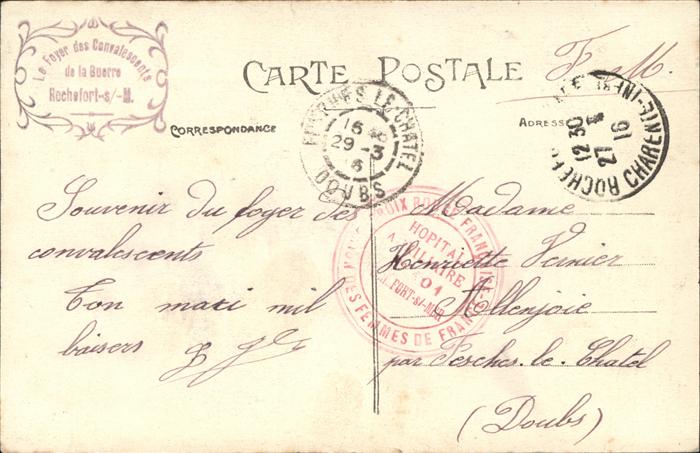 Le Foyer des Convalescents
de la Guerre
Rochefort-s/-M.
F. M.
CARTE POSTALE
CORRESPONDANCE
ADRESSE
LE CHATEL
16
29 - 3
16
DOUBS
12 30
27 - 3
16
CHARENTE-INFRE
CROIX ROUGE FRANÇAISE
HOPITAL
AUXILIAIRE
01
FORT-s/-MER
DES FEMMES DE FRANCE
Souvenir du foyer des
convalescents
Ton mari mil
baisers
Madame
Henriette Vernier
Allenjoie
par Fesches-le-Chatel
(Doubs)